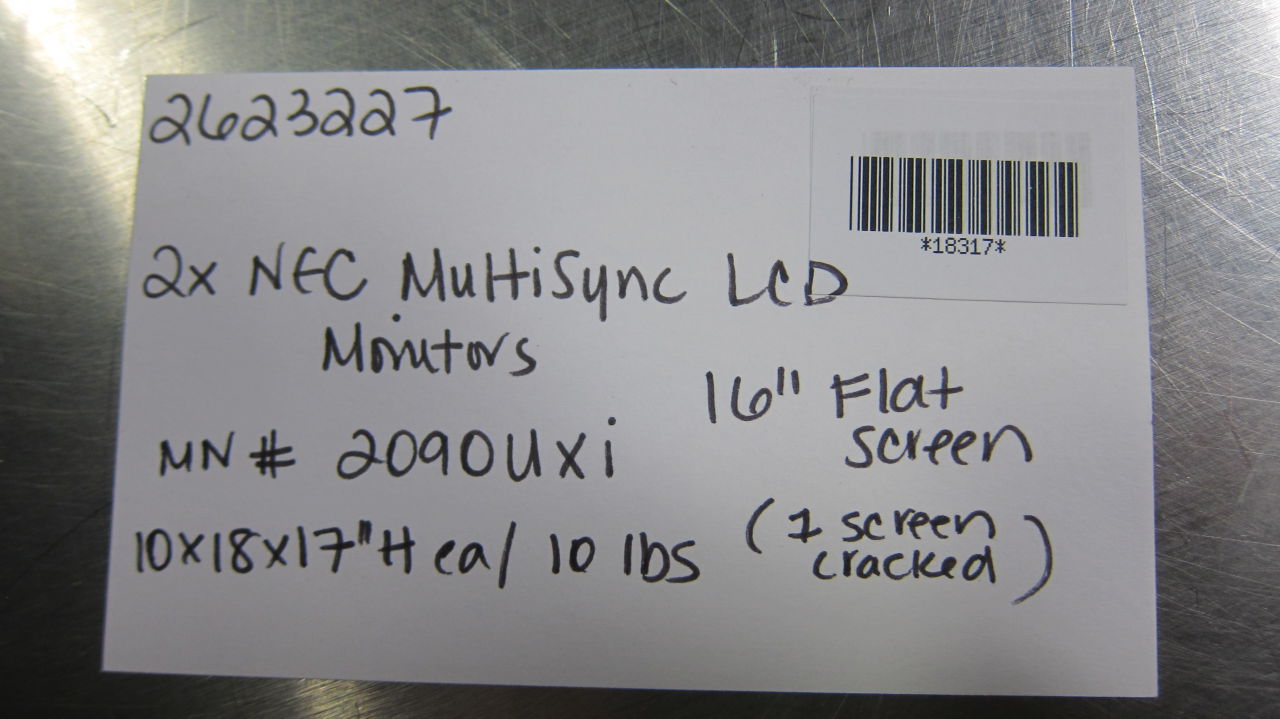 2623227
*18317*
2x NEC MultiSync LCD
Monitors
16" Flat
screen
MN# 2090UXi
10x18x17"H ea/ 10 lbs
(1 screen
cracked)